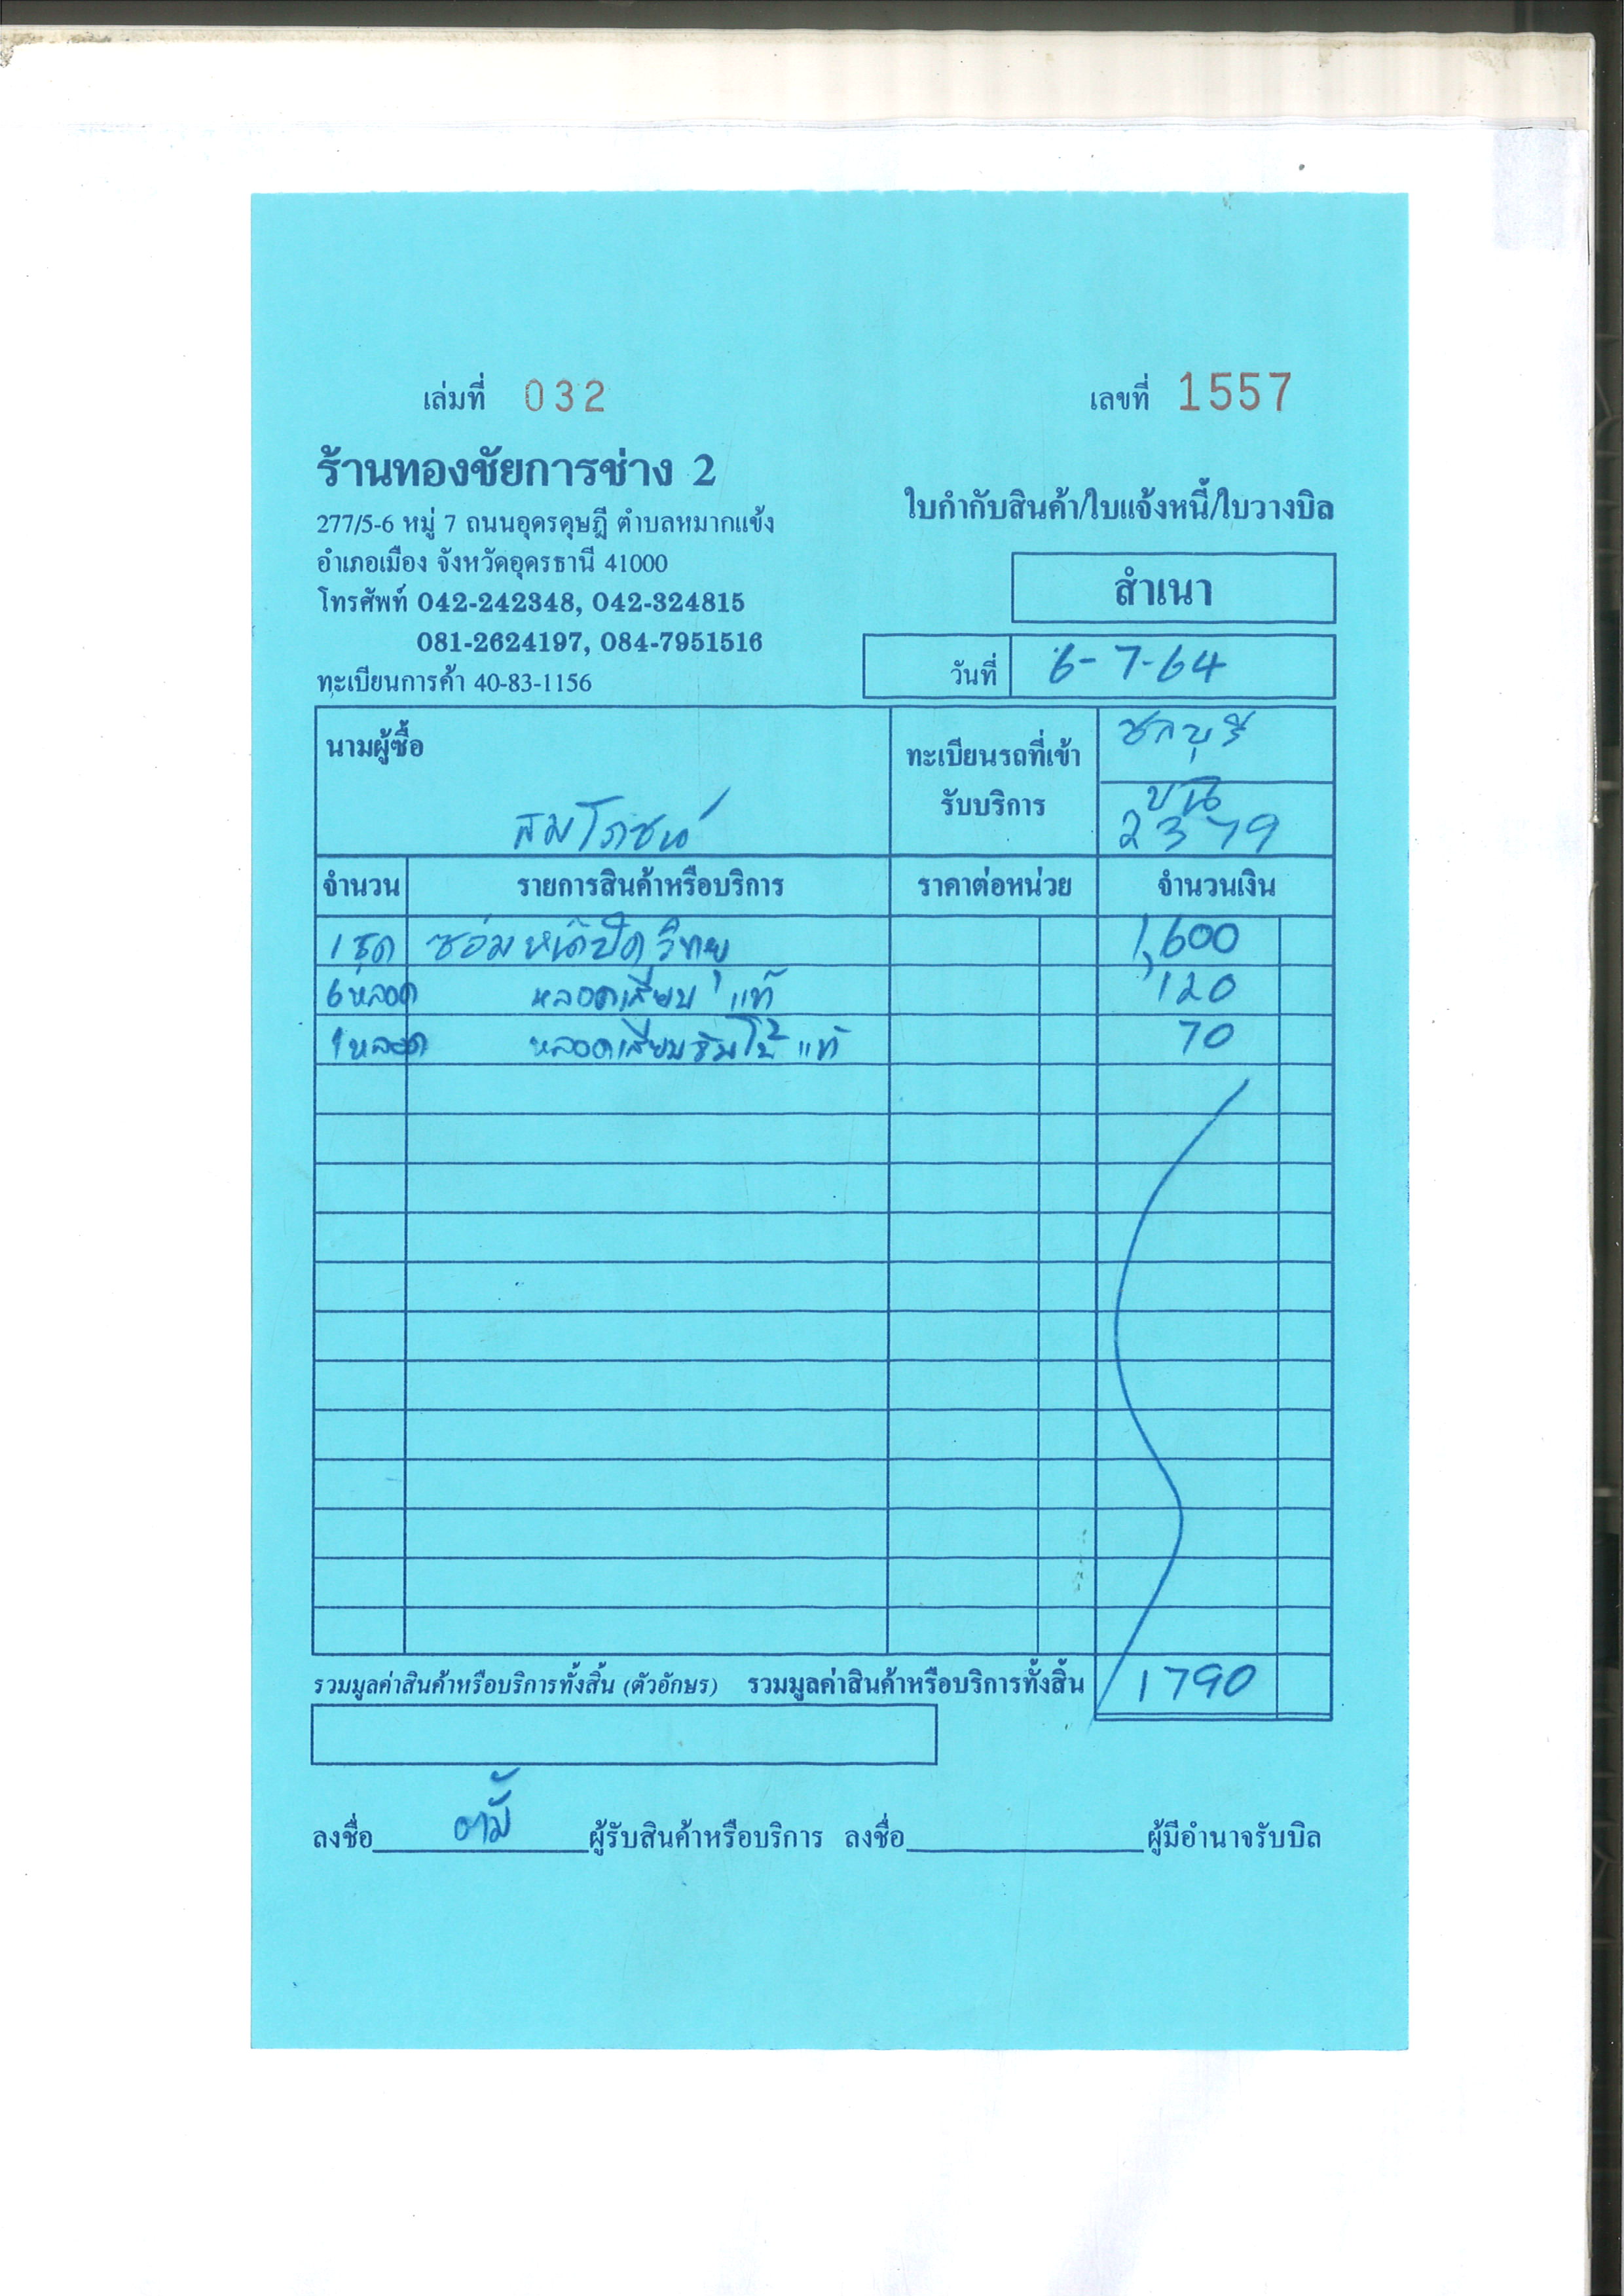 เล่มที่ 032 เลขที่ 1557
ร้านทองชัยการช่าง 2
277/5-6 หมู่ 7 ถนนอุดรดุษฎี ตำบลหมากแข้ง
อำเภอเมือง จังหวัดอุดรธานี 41000
โทรศัพท์ 042-242348, 042-324815
081-2624197, 084-7951516
ทะเบียนการค้า 40-83-1156
ใบกำกับสินค้า/ใบแจ้งหนี้/ใบวางบิล
สำเนา
วันที่ 6-7-64
นามผู้ซื้อ
สมโภชน์
ทะเบียนรถที่เข้า
รับบริการ
ชลบุรี
2379
จำนวน รายการสินค้าหรือบริการ ราคาต่อหน่วย จำนวนเงิน
1 ชุด ซ่อม วิทยุ 1,600
6 หลอด หลอดเสียบ แท้ 120
1 หลอด หลอดเสียบ แท้ 70
รวมมูลค่าสินค้าหรือบริการทั้งสิ้น (ตัวอักษร) รวมมูลค่าสินค้าหรือบริการทั้งสิ้น 1790
ลงชื่อ ผู้รับสินค้าหรือบริการ ลงชื่อ ผู้มีอำนาจรับบิล